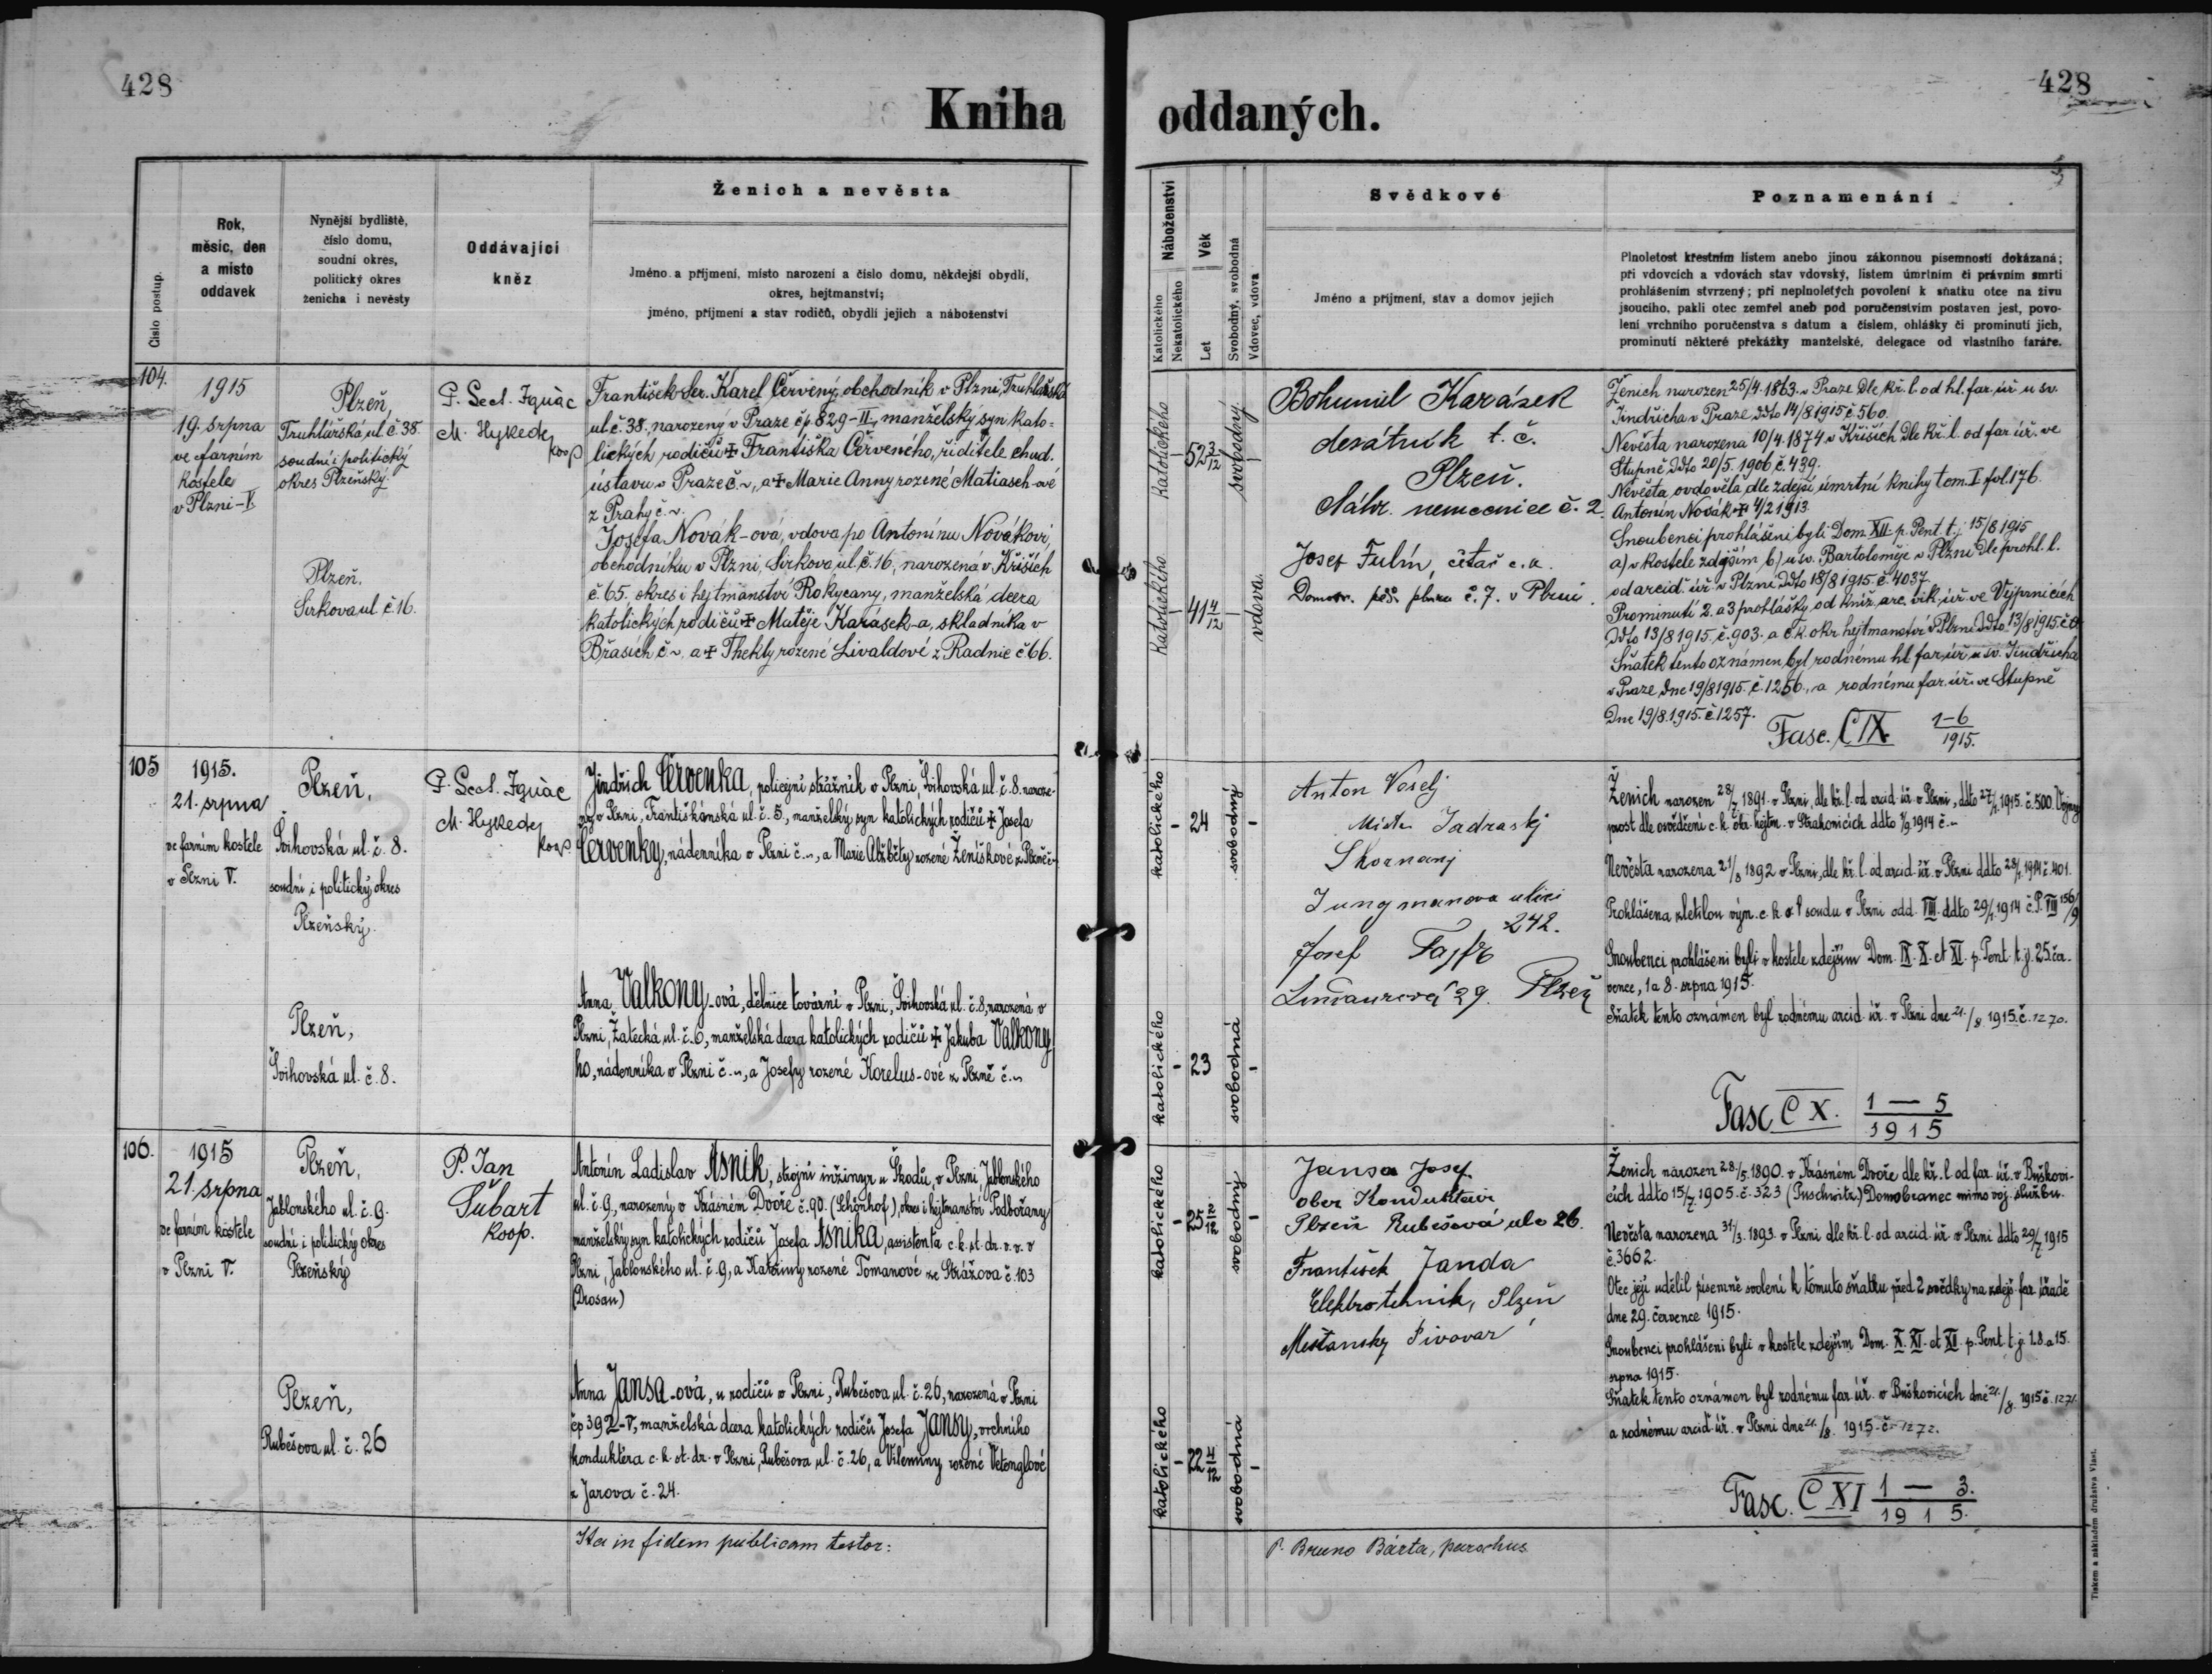 428
428
Kniha oddaných.
Číslo postup.
Rok,
měsíc, den
a místo
oddavek
Nynější bydliště,
číslo domu,
soudní okres,
politický okres
ženicha i nevěsty
Oddávající
kněz
Ženich a nevěsta
Jméno a příjmení, místo narození a číslo domu, někdejší obydlí,
okres, hejtmanství;
jméno, příjmení a stav rodičů, obydlí jejich a náboženství
Náboženství
Katolického
Nekatolického
Věk
Let
Svobodný, svobodná
Vdovec, vdova
Svědkové
Jméno a příjmení, stav a domov jejich
Poznamenání
Plnoletost křestním listem anebo jinou zákonnou písemností dokázaná;
při vdovcích a vdovách stav vdovský, listem úmrtním či právním smrti
prohlášením stvrzený; při neplnoletých povolení k sňatku otce na živu
jsoucího, pakli otec zemřel aneb pod poručenstvím postaven jest, povo-
lení vrchního poručenstva s datum a číslem, ohlášky či prominutí jich,
prominutí některé překážky manželské, delegace od vlastního faráře.
104.
1915
19. srpna
ve farním
kostele
v Plzni-V.
Plzeň,
Truhlářská ul. č 38.
soudní i politický
okres Plzeňský.
Plzeň,
Sirkova ul č 16.
P. Secl. Ignác
M. Hykede
koop
František Ser. Karel Červený, obchodník v Plzni, Truhlářská
ul č. 38., narozený v Praze čp 829-II., manželský syn kato=
lických rodičů ✝ Františka Červeného, ředitele chud.
ústavu v Praze č. ~, a ✝ Marie Anny rozené Matiasch-ové
z Prahy č. ~.
Josefa Novák-ová, vdova po Antonínu Novákovi,
obchodníku v Plzni, Sirkova ul. č. 16, narozená v Křiších
č. 65. okres i hejtmanství Rokycany, manželská dcera
katolických rodičů ✝ Matěje Karásek-a, skladníka v
Břasích č ~. a ✝ Thekly rozené Livaldové z Radnic č 66.
katolického
52 3/12
svobodný
katolického
41 4/12
vdova
Bohumil Karásek
desátník t. č.
Plzeň.
Náhr. nemocnice č. 2.
Josef Fulín, četař c. k.
Domobr. pěš. pluku č. 7. v Plzni.
Ženich narozen 25/4. 1863. v Praze dle kř. l. od hl. far. úř u sv.
Jindřicha v Praze ddto 14/8 1915 č 560.
Nevěsta narozena 10/4. 1874 v Křiších dle kř. l. od far. úř. ve
Stupně ddto 20/5. 1906 č. 439.
Nevěsta ovdověla dle zdejší úmrtní knihy tom. I fol. 176.
Antonín Novák ✝ 4/2 1913.
Snoubenci prohlášeni byli Dom. XII. p. Pent. t. j. 15/8 1915
a) v kostele zdejším b) u sv. Bartoloměje v Plzni dle prohl. l.
od arcid. úř. v Plzni ddto 18/8 1915. č. 4037.
Prominutí 2. a 3 prohlášky od kníž. arc. vik. úř. ve Vejprnicích
ddto 13/8 1915, č. 903. a c k okr hejtmanství v Plzni ddto 13/8 1915
Sňatek tento oznámen byl rodnému hl. far. úř. u sv. Jindřicha
v Praze dne 19/8 1915. č. 1256., a rodnému far. úř. ve Stupně
Dne 19/8. 1915. č 1257.
Fasc. CIX. 1-6/1915.
105
1915.
21. srpna
ve farním kostele
v Plzni V.
Plzeň,
Švihovská ul. č. 8.
soudní i politický okres
Plzeňský.
Plzeň,
Švihovská ul. č. 8.
P. Secl. Ignác
M. Hykede
koop.
Jindřich Červenka, policejní strážník v Plzni, Švihovská ul. č. 8. naroze-
ný v Plzni, Františkánská ul. č. 5., manželský syn katolických rodičů ✝ Josefa
Červenky, nádenníka v Plzni č. ~, a Marie Alžběty rozené Ženíškové z Plzně č. ~
Anna Valkony-ová, dělnice tovární v Plzni, Švihovská ul. č. 8, narozená v
Plzni, Žatecká ul. č. 6, manželská dcera katolických rodičů ✝ Jakuba Valkony
ho, nádenníka v Plzni č. ~, a Josefy rozené Korelus-ové z Plzně č. ~
katolického
24
svobodný
katolického
23
svobodná
Anton Veselj
Jadraskj
Skornanj
Jungmanova ulici
242.
Josef Fajfr
Lindaurová 29. Plzeň
Ženich narozen 28/7 1891. v Plzni, dle kř. l. od arcid. úř. v Plzni, ddto 27/7. 1915. č. 500. Vojny
prost dle osvědčení c. k. okr. hejtm. v Strakonicích ddto 7/9 1914 č. ~
Nevěsta narozena 21/8 1892 v Plzni, dle kř. l. od arcid. úř. v Plzni ddto 28/7 1914 č. 401.
Prohlášena zletilou vým. c. k. o. soudu v Plzni odd. VIII. ddto 29/7. 1914 č. P. VIII 156/9
Snoubenci prohlášeni byli v kostele zdejším Dom. IX. X. et XI. p. Pent. t. j. 25. čer-
vence, 1 a 8. srpna 1915.
Sňatek tento oznámen byl rodnému arcid. úř. v Plzni dne 21./8. 1915. č. 1270.
Fasc CX. 1 — 5/1915
106.
1915
21. srpna
ve farním kostele
v Plzni V.
Plzeň,
Jablonského ul. č. 9.
soudní i politický okres
Plzeňský
Plzeň,
Rubešova ul. č. 26
P. Jan
Šubart
koop.
Antonín Ladislav Asnik, strojní inžinyr u Škodů, v Plzni Jablonského
ul. č. 9., narozený v Krásném Dvoře č. 90. (Schönhof), okres i hejtmanství Podbořany
manželský syn katolických rodičů Josefa Asnika, assistenta c. k. st. dr. v. v. v
Plzni, Jablonského ul. č. 9, a Kateřiny rozené Tomanové ze Strážova č. 103
(Drosau)
Anna Jansa-ová, u rodičů v Plzni, Rubešova ul. č. 26, narozená v Plzni
čp 392-V., manželská dcera katolických rodičů Josefa Jansy, vrchního
konduktéra c. k. st. dr. v Plzni, Rubešova ul. č. 26, a Vilemíny rozené Vetenglové
z Jarova č. 24.
katolického
25 2/12
svobodný
katolického
22 4/12
svobodná
Jansa Josef
ober Kondukteur
Plzeň Rubešová ulc 26.
František Janda
Elektrotehnik, Plzeň
Mešťansky Pivovar
Ženich narozen 28./5. 1890. v Krásném Dvoře dle kř. l. od far. úř. v Buškovi-
cích ddto 15/7. 1905. č. 323 (Puschwitz.) Domobranec mimo voj. službu.
Nevěsta narozena 31/3. 1893. v Plzni dle kř. l. od arcid. úř. v Plzni ddto 29/7 1915
č. 3662.
Otec její udělil písemně svolení k tomuto sňatku před 2 svědky na zdejš. far. úřadě
dne 29. července 1915.
Snoubenci prohlášeni byli v kostele zdejším Dom. X. XI. et XII. p. Pent. t. j. 1. 8. a 15.
srpna 1915.
Sňatek tento oznámen byl rodnému far. úř. v Buškovicích dne 21./8. 1915 č. 1271.
a rodnému arcid. úř. v Plzni dne 21./8. 1915. č. 1272.
Fasc. CXI 1 — 3./1915.
Ita in fidem publicam testor:
P. Bruno Bárta, parochus
Tiskem a nákladem družstva Vlast.